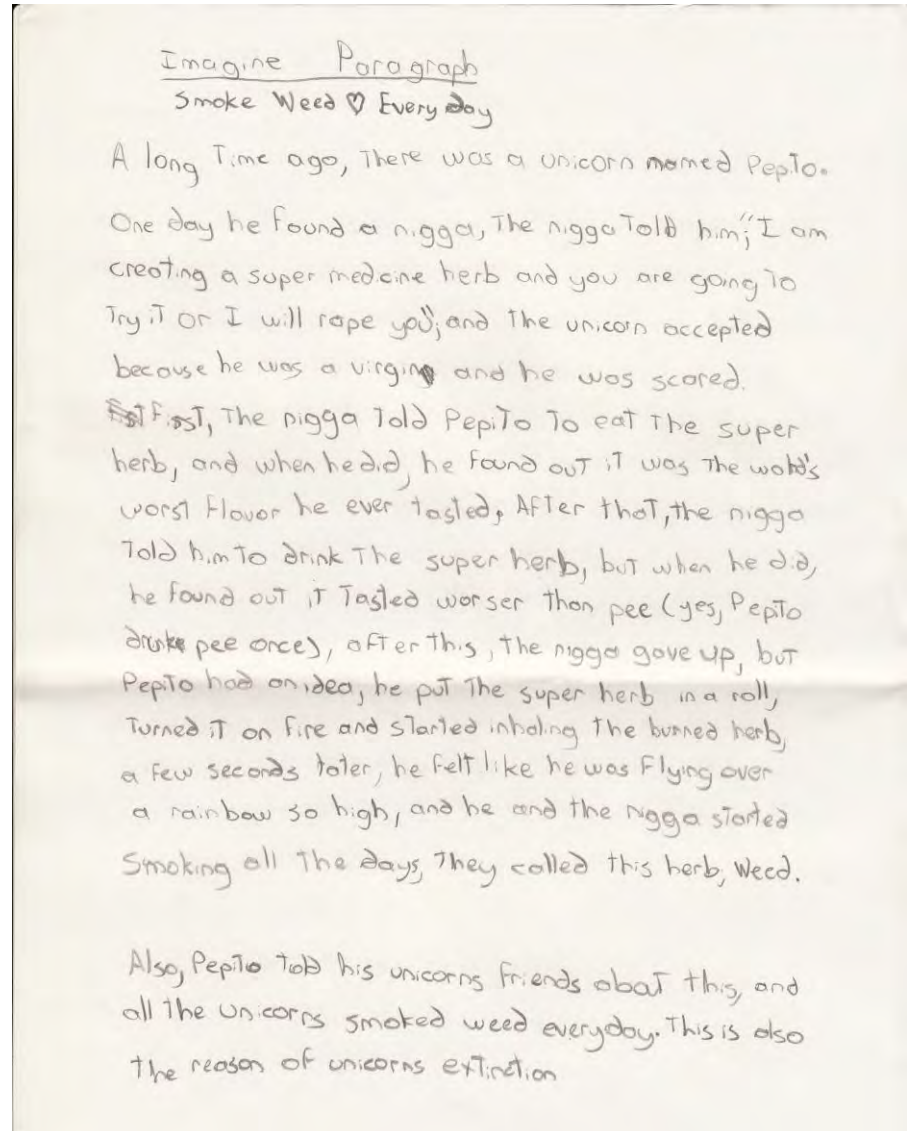 Imagine Paragraph
Smoke Weed ♡ Every day
A long Time ago, There was a unicorn named Pepito.
One day he found a nigga, The nigga Told him; "I am
creating a super medicine herb and you are going To
Try iT or I will rape you"; and The unicorn accepted
because he was a virgin and he was scared.
First, The nigga Told Pepito To eat The super
herb, and when he did, he found ouT iT was The wold's
worst Flavor he ever tasted. After thaT, the nigga
Told him To drink The super herb, buT when he did,
he found ouT iT Tasted worser than pee (yes, Pepito
drinks pee once), after this, the nigga gave up, buT
Pepito had an idea, he puT The super herb in a roll,
Turned iT on fire and started inhaling The burned herb,
a few seconds later, he felt like he was Flying over
a rainbow so high, and he and the nigga started
Smoking all The days, They called this herb, Weed.
Also, Pepito told his unicorns friends abouT this, and
all the unicorns smoked weed everyday. This is also
the reason of unicorns extinction